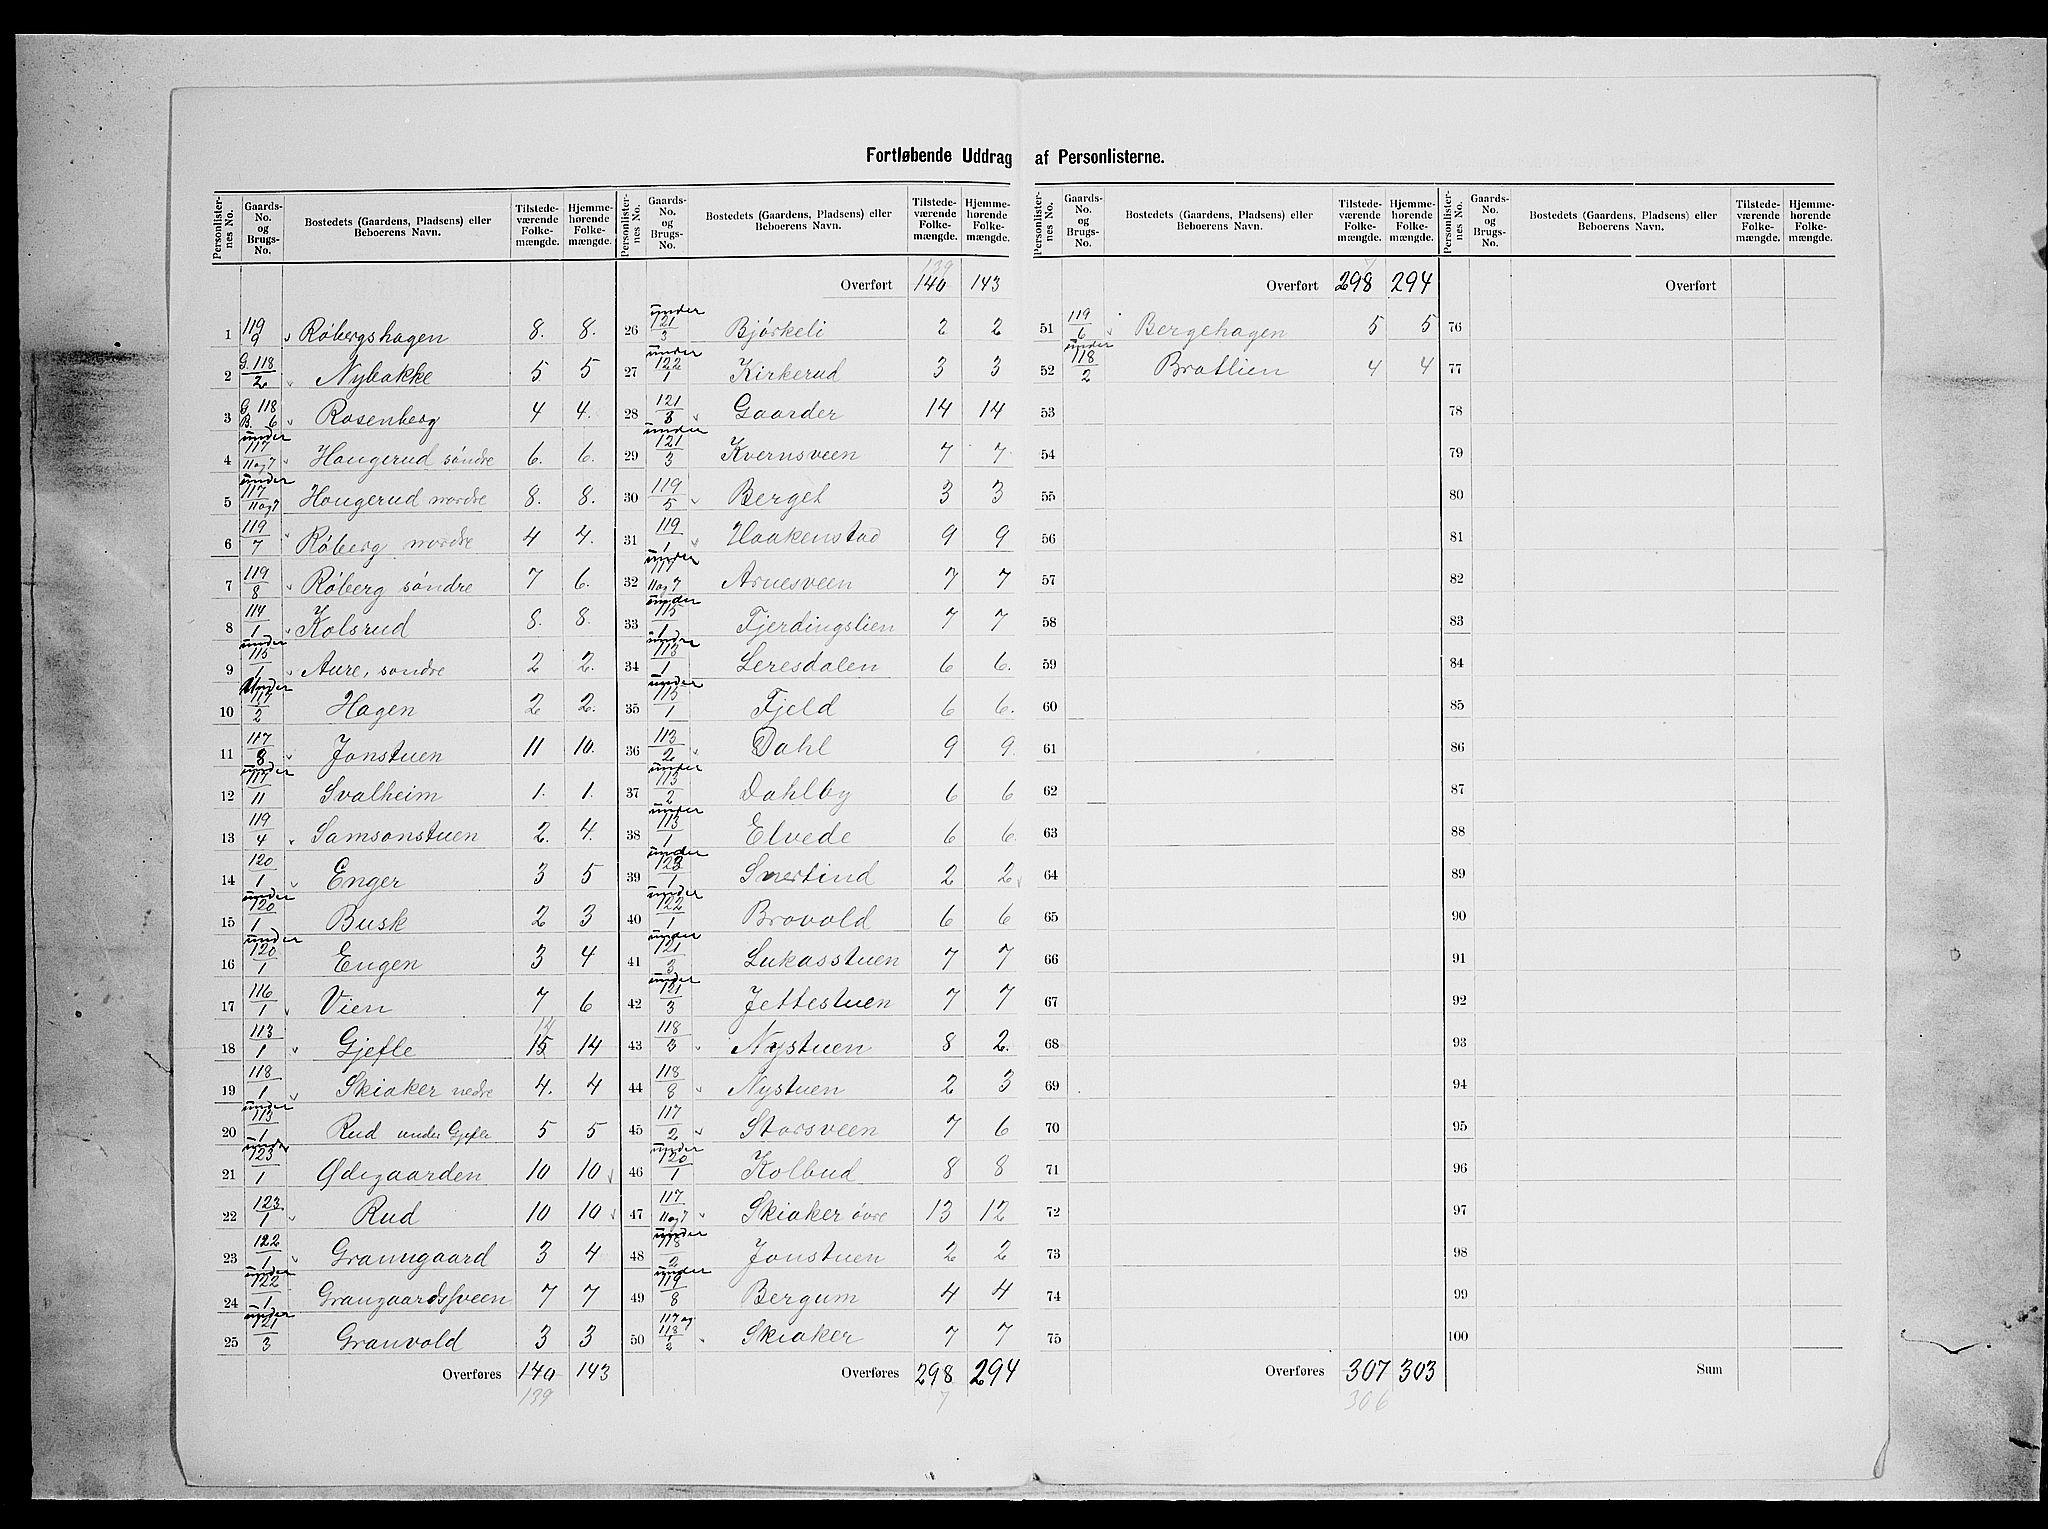 Fortløbende Uddrag af Personlisterne.
Personlisternes No. | Gaards-No. og Brugs-No. | Bostedets (Gaardens, Pladsens) eller Beboerens Navn. | Tilstedeværende Folkemængde. | Hjemmehørende Folkemængde.
1 119/9 Röbergshagen 8. 8.
2 G. 118/2 Nybakke 5 5
3 G. 118 B. 6 Rosenberg 4 4.
4 under 117/11og7 Hougerud söndre 6. 6.
5 under 117/11og7 Hougerud nordre 8. 8.
6 119/7 Röberg nordre 4 4.
7 119/8 Röberg söndre 7 6.
8 114/1 Kolsrud 8. 8.
9 under 115/1 Aure, søndre 2 2.
10 Under 117/2 Hagen 2 2.
11 117/8 Jonstuen 11 10.
12 under 117/11 Svalheim 1. 1.
13 119/4 Samsonstuen 2. 4.
14 120/1 Enger 3 5
15 under 120/1 Busk 2 3
16 under 120/1 Engen 3 4
17 116/1 Vien 7 6
18 113/1 Gjefle 15 14 14
19 118/1 Skiaker nedre 4. 4
20 under 113/1 Rud under Gjefle 5 5
21 under 123/1 Ødegaarden 10 10
22 123/1 Rud 10 10
23 122/1 Granngaard 3 4
24 under 122/1 Grangaardssveen 7 7
25 under 121/3 Granvold 3 3
Overføres 140 143
139
Overført 140 143
139
26 under 121/3 Bjørkeli 2 2
27 under 122/1 Kirkerud 3 3
28 121/3 Gaarder 14 14
29 under 121/3 Kvernsveen 7 7
30 119/5 Berget 3 3
31 119/1 Haakenstad 9 9
32 under 117/11og7 Arnesveen 7 7
33 under 115/1 Fjerdingslien 7 7
34 under 113/1 Leresdalen 6 6.
35 under 115/1 Fjeld 6 6.
36 113/2 Dahl 9 9.
37 under 113/2 Dahlby 6 6
38 under 113/1 Elvede 6 6.
39 under 123/1 Smertind 2 2
40 under 122/1 Brovold 6 6
41 under 121/3 Lukasstuen 7 7
42 under 121/3 Jettestuen 7 7
43 118/3 Nystuen 8 2.
44 118/8 Nystuen 2 3
45 117/2 Storsveen 7 6
46 under 120/1 Kolbud 8 8
47 117/11og7 Skiaker övre 13 12
48 under 118/2 Jonstuen 2 2
49 under 119/8 Bergum 4 4
50 117 og 118/2 Skiaker 7 7
Overføres 298 294
7
Overført 298 294
7
51 119/6 Bergehagen 5 5
52 under 118/2 Bratlien 4 4
53
54
55
56
57
58
59
60
61
62
63
64
65
66
67
68
69
70
71
72
73
74
75
Overføres 307 303
306
Overført
76
77
78
79
80
81
82
83
84
85
86
87
88
89
90
91
92
93
94
95
96
97
98
99
100
Sum